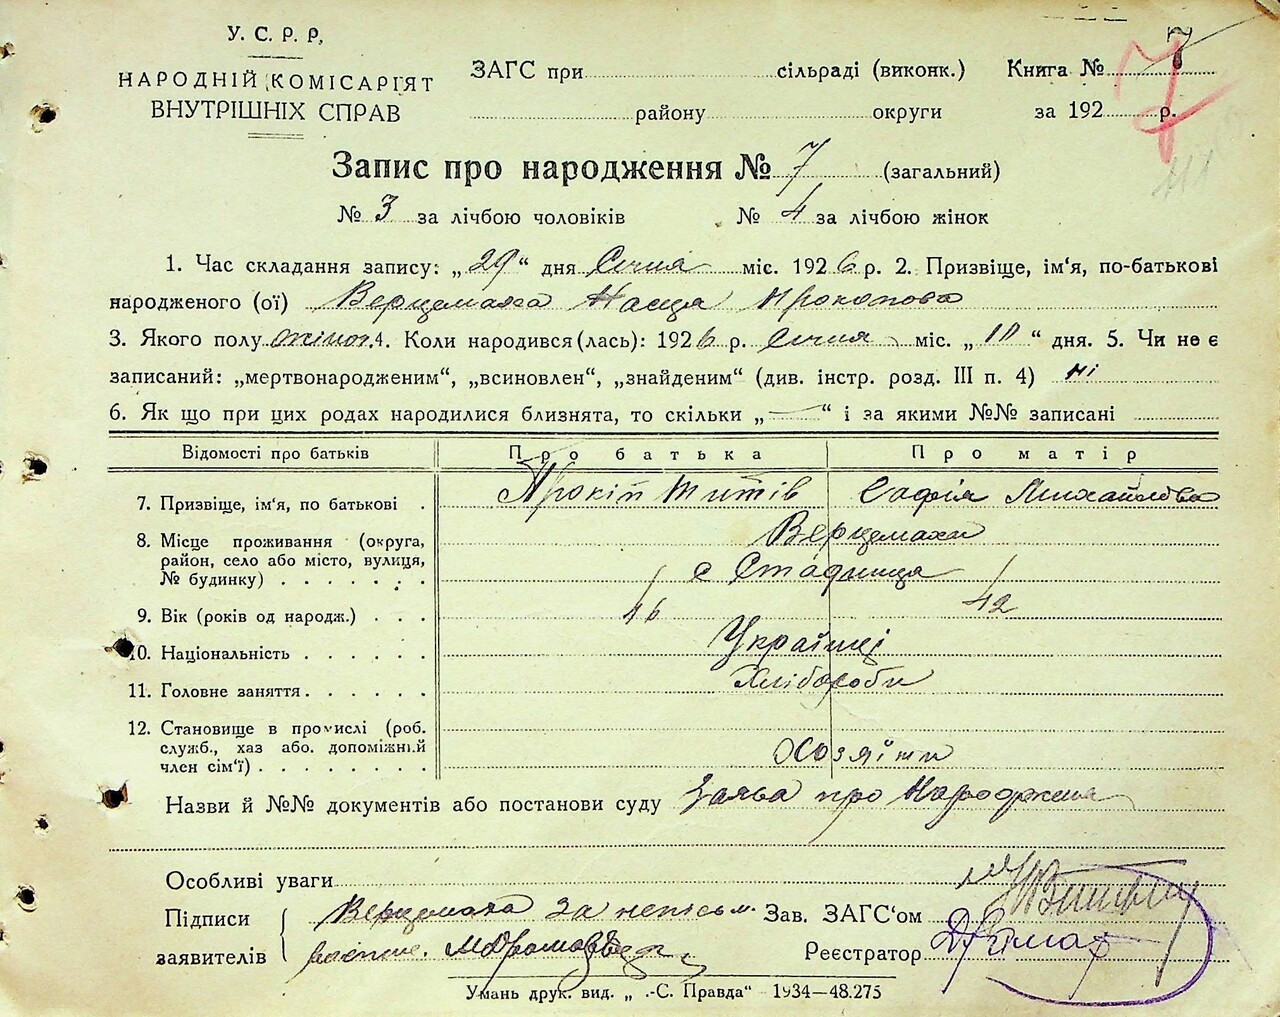 У. С. Р. Р.
НАРОДНІЙ КОМІСАРІЯТ
ВНУТРІШНІХ СПРАВ
ЗАГС при сільраді (виконк.) Книга № 7
району округи за 192 р.
Запис про народження № 7 (загальний)
№ 3 за лічбою чоловіків № 4 за лічбою жінок
1. Час складання запису: „29“ дня Січня міс. 1926 р. 2. Призвіще, ім‘я, по-батькові
народженого (ої) Верцемаха Настя Прокопова
3. Якого полу жіноч. 4. Коли народився(лась): 1926 р. Січня міс. „ “ дня. 5. Чи не є
записаний: „мертвонародженим“, „всиновлен“, „знайденим“ (див. інстр. розд. III п. 4) ні
6. Як що при цих родах народилися близнята, то скільки „—“ і за якими №№ записані
Відомості про батьків Про батька Про матір
7. Призвіще, ім‘я, по батькові Прокіп Титів Софія Михайлова
Верцемахи
8. Місце проживання (округа,
район, село або місто, вулиця,
№ будинку) с Стадниця
9. Вік (років од народж.) 46 42
10. Національність Українці
11. Головне заняття Хлібороби
12. Становище в промислі (роб.
служб., хаз або. допоміжний
член сім‘ї) Хозяїни
Назви й №№ документів або постанови суду Заява про Народження
Особливі уваги
Підписи Верцемаха за неписьм. Зав. ЗАГС‘ом
заявителів Реєстратор
Умань друк. вид. „ .-С. Правда“ 1934—48.275